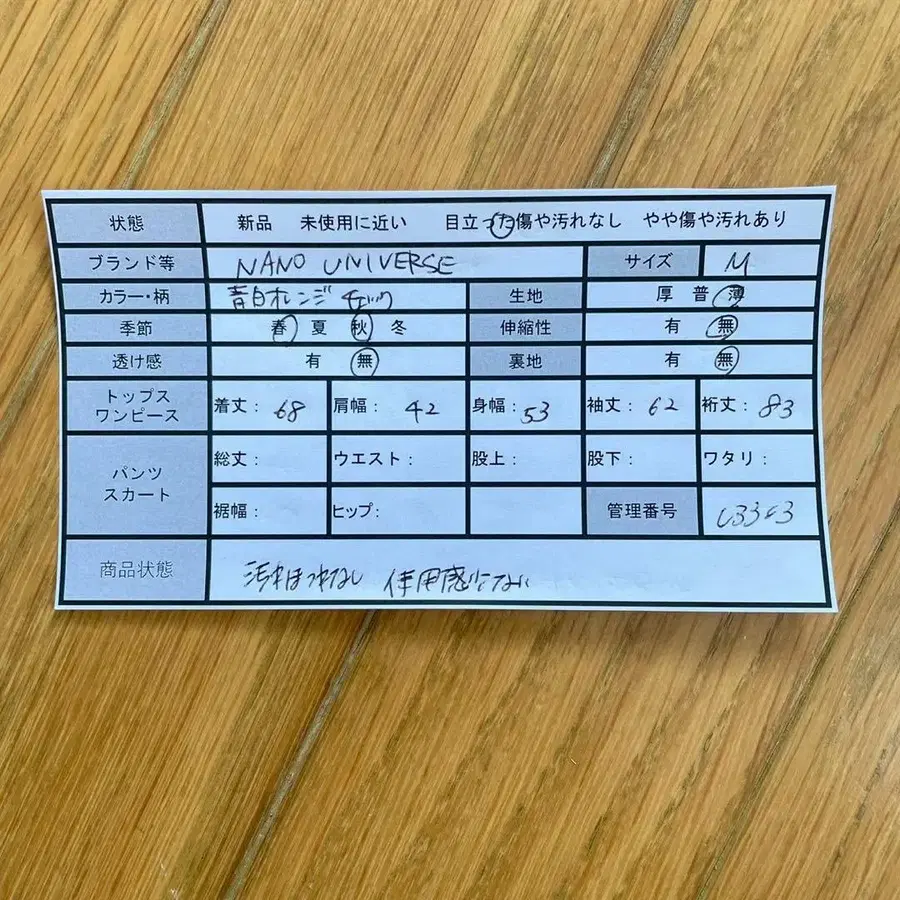 状態 新品 未使用に近い 目立った傷や汚れなし やや傷や汚れあり
ブランド等 NANO UNIVERSE サイズ M
カラー・柄 青白オレンジ チェック 生地 厚 普 薄
季節 春 夏 秋 冬 伸縮性 有 無
透け感 有 無 裏地 有 無
トップス
ワンピース
着丈: 68 肩幅: 42 身幅: 53 袖丈: 62 裄丈: 83
パンツ
スカート
総丈: ウエスト: 股上: 股下: ワタリ:
裾幅: ヒップ: 管理番号
商品状態 汚れほつれなし 使用感少ない